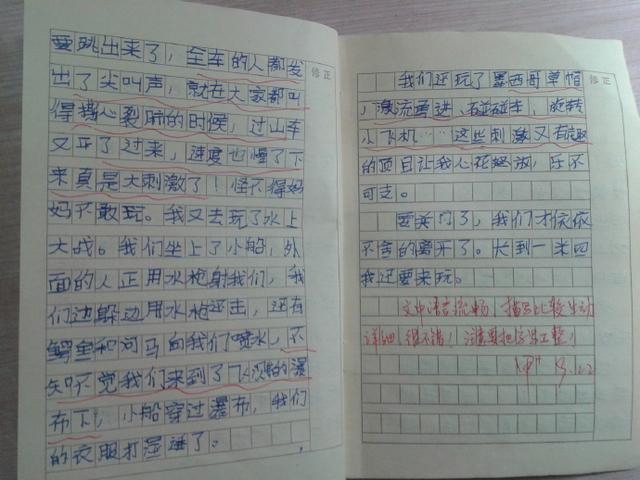 要跳出来了，全车的人都发
出了尖叫声，就在大家都叫
得撕心裂肺的时候，过山车
又平了过来，速度也慢了下
来真是太刺激了！怪不得妈
妈不敢玩。我又去玩了水上
大战。我们坐上了小船，外
面的人正用水枪射我们，我
们边躲边用水枪还击，还有
鳄鱼和河马向我们喷水，不
知不觉我们来到了飞流的瀑
布下，小船穿过瀑布，我们
的衣服打湿透了。
修正
我们还玩了墨西哥草帽
，激流勇进、碰碰车，旋转
小飞机……这些刺激又有趣
的项目让我心花怒放，乐不
可支。
要关门了，我们才依依
不舍的离开了。长到一米四
我还要来玩。
文中语言流畅，描写比较生动
详细，很不错！注意要把字写工整！
修正